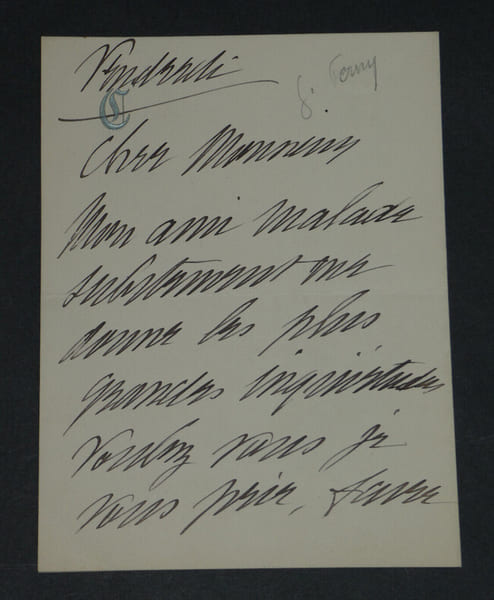 Vendredi
C
Cher Monsieur
Mon ami malade
subitement me
donne les plus
grandes inquiétudes
voulez vous je
vous prie, faire